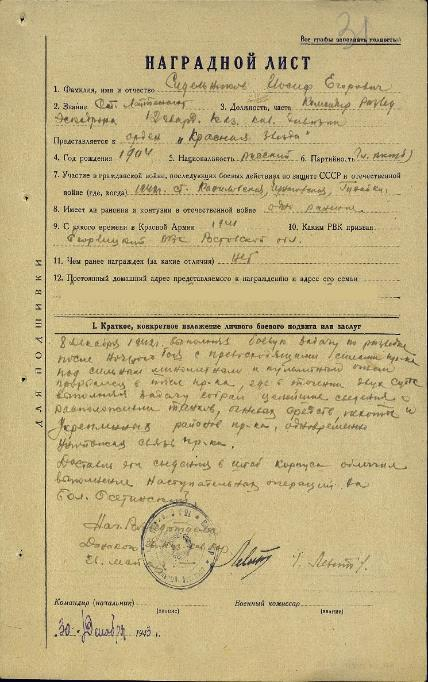 31
Все графы заполнять полностью
НАГРАДНОЙ ЛИСТ
1. Фамилия, имя и отчество Сидельников Иосиф Егорович
2. Звание Ст. Лейтенант 3. Должность, часть Командир развед.
Эскадрона 12 гвард. каз. кав. дивизии
Представляется к орден „Красная звезда"
4. Год рождения 1904 5. Национальность русский 6. Партийность
7. Участие в гражданской войне, последующих боевых действиях по защите СССР и отечественной
войне (где, когда) 1942г.
8. Имеет ли ранения и контузии в отечественной войне одно ранение
9. С какого времени в Красной Армии 1941 10. Каким РВК призван
РВК Ростовской обл.
11. Чем ранее награжден (за какие отличия) нет
12. Постоянный домашний адрес представляемого к награждению и адрес его семьи
ДЛЯ ПОДШИВКИ
I. Краткое, конкретное изложение личного боевого подвига или заслуг
8 декабря 1942г. выполняя боевую задачу по разведке
после ночного боя с превосходящими силами пр-ка
под сильным минометным и пулеметным огнем
в тыл пр-ка, где в течении двух суток
выполняя задачу собрал ценнейшие сведения о
расположении танков, огневых средств, пехоты и
укрепленных районов пр-ка, одновременно
связь пр-ка.
Доставив эти сведения в штаб корпуса облегчил
выполнение наступательной операции на
Нач.
Командир (начальник) (звание) Военный комиссар (звание)
30 декабря 1943 г.